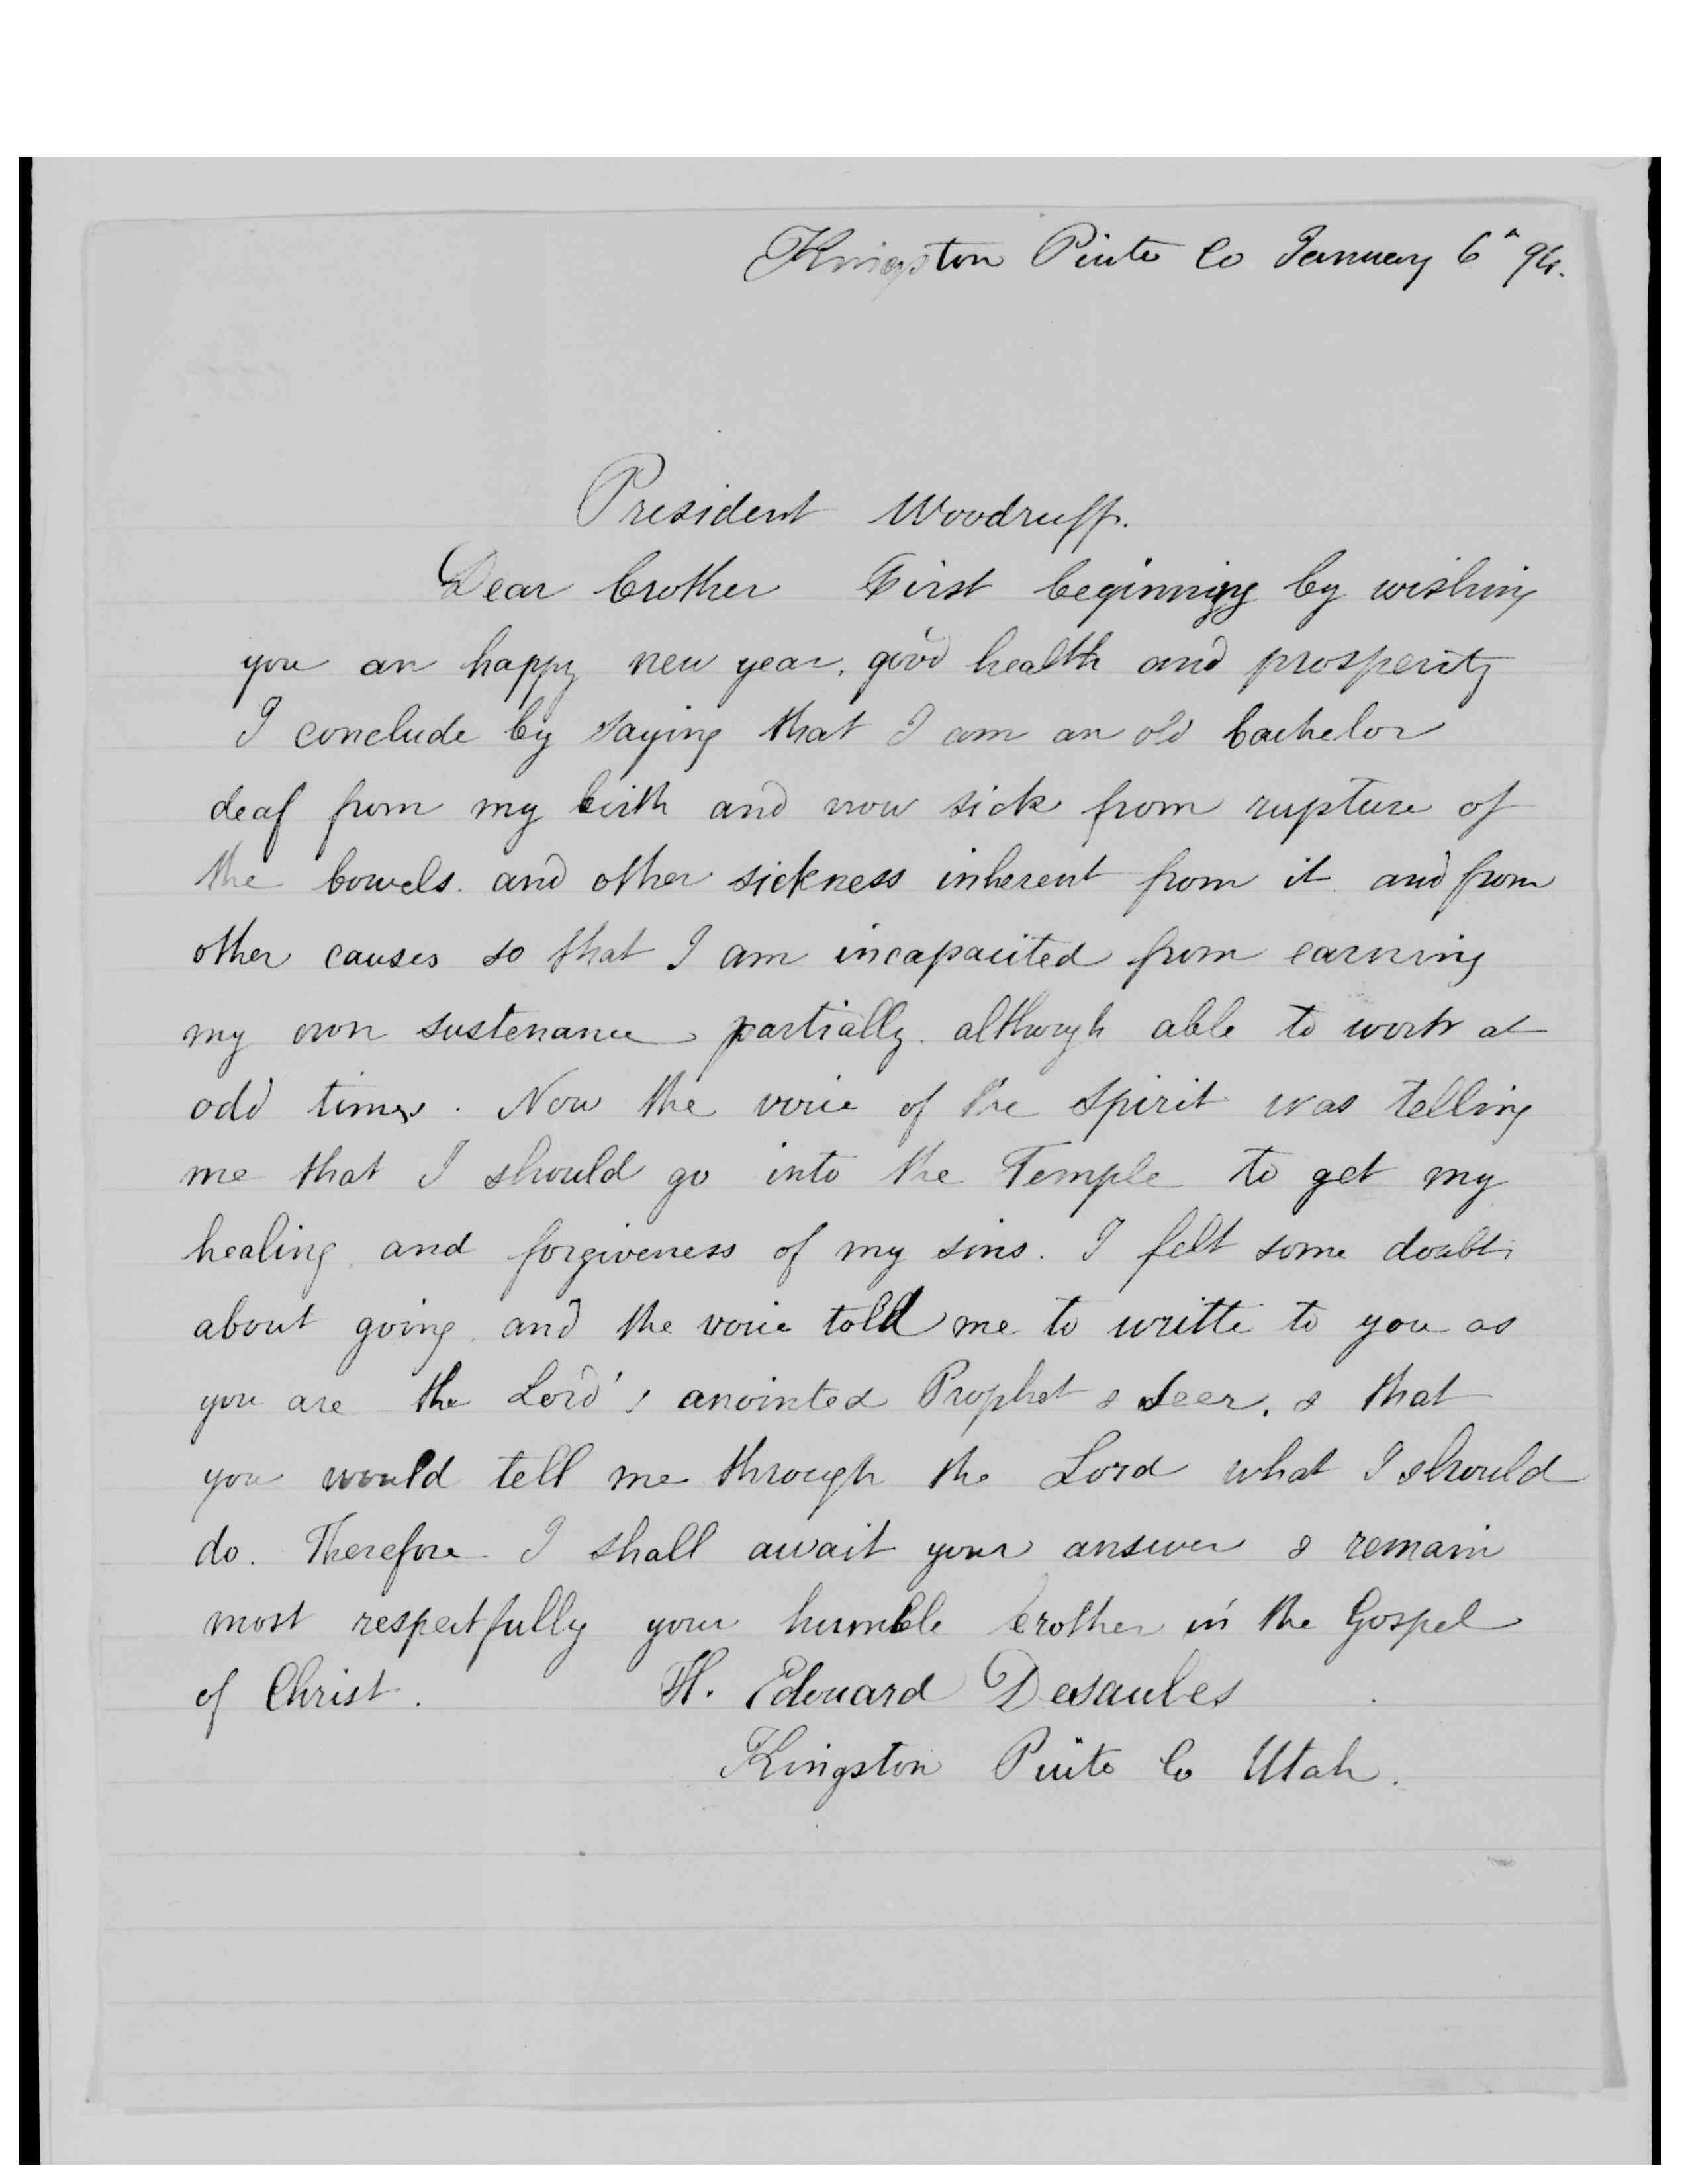 Kingston Piute Co January 6" 94.
President Woodruff.
Dear brother First beginning by wishing
you an happy new year, good health and prosperity
I conclude by saying that I am an old bachelor
deaf from my birth and now sick from rupture of
the bowels. and other sickness inherent from it and from
other causes so that I am incapacited from earning
my own sustenance partially. although able to work at
odd times. Now the voice of the Spirit was telling
me that I should go into the Temple to get my
healing, and forgiveness of my sins. I felt some doubts
about going, and the voice told me to writte to you as
you are the Lord's anointed Prophet & Seer. & that
you would tell me through the Lord what I should
do. Therefore I shall await your answer & remain
most respectfully your humble brother in the Gospel
of Christ. H. Edouard Desaules
Kingston Piute Co Utah.